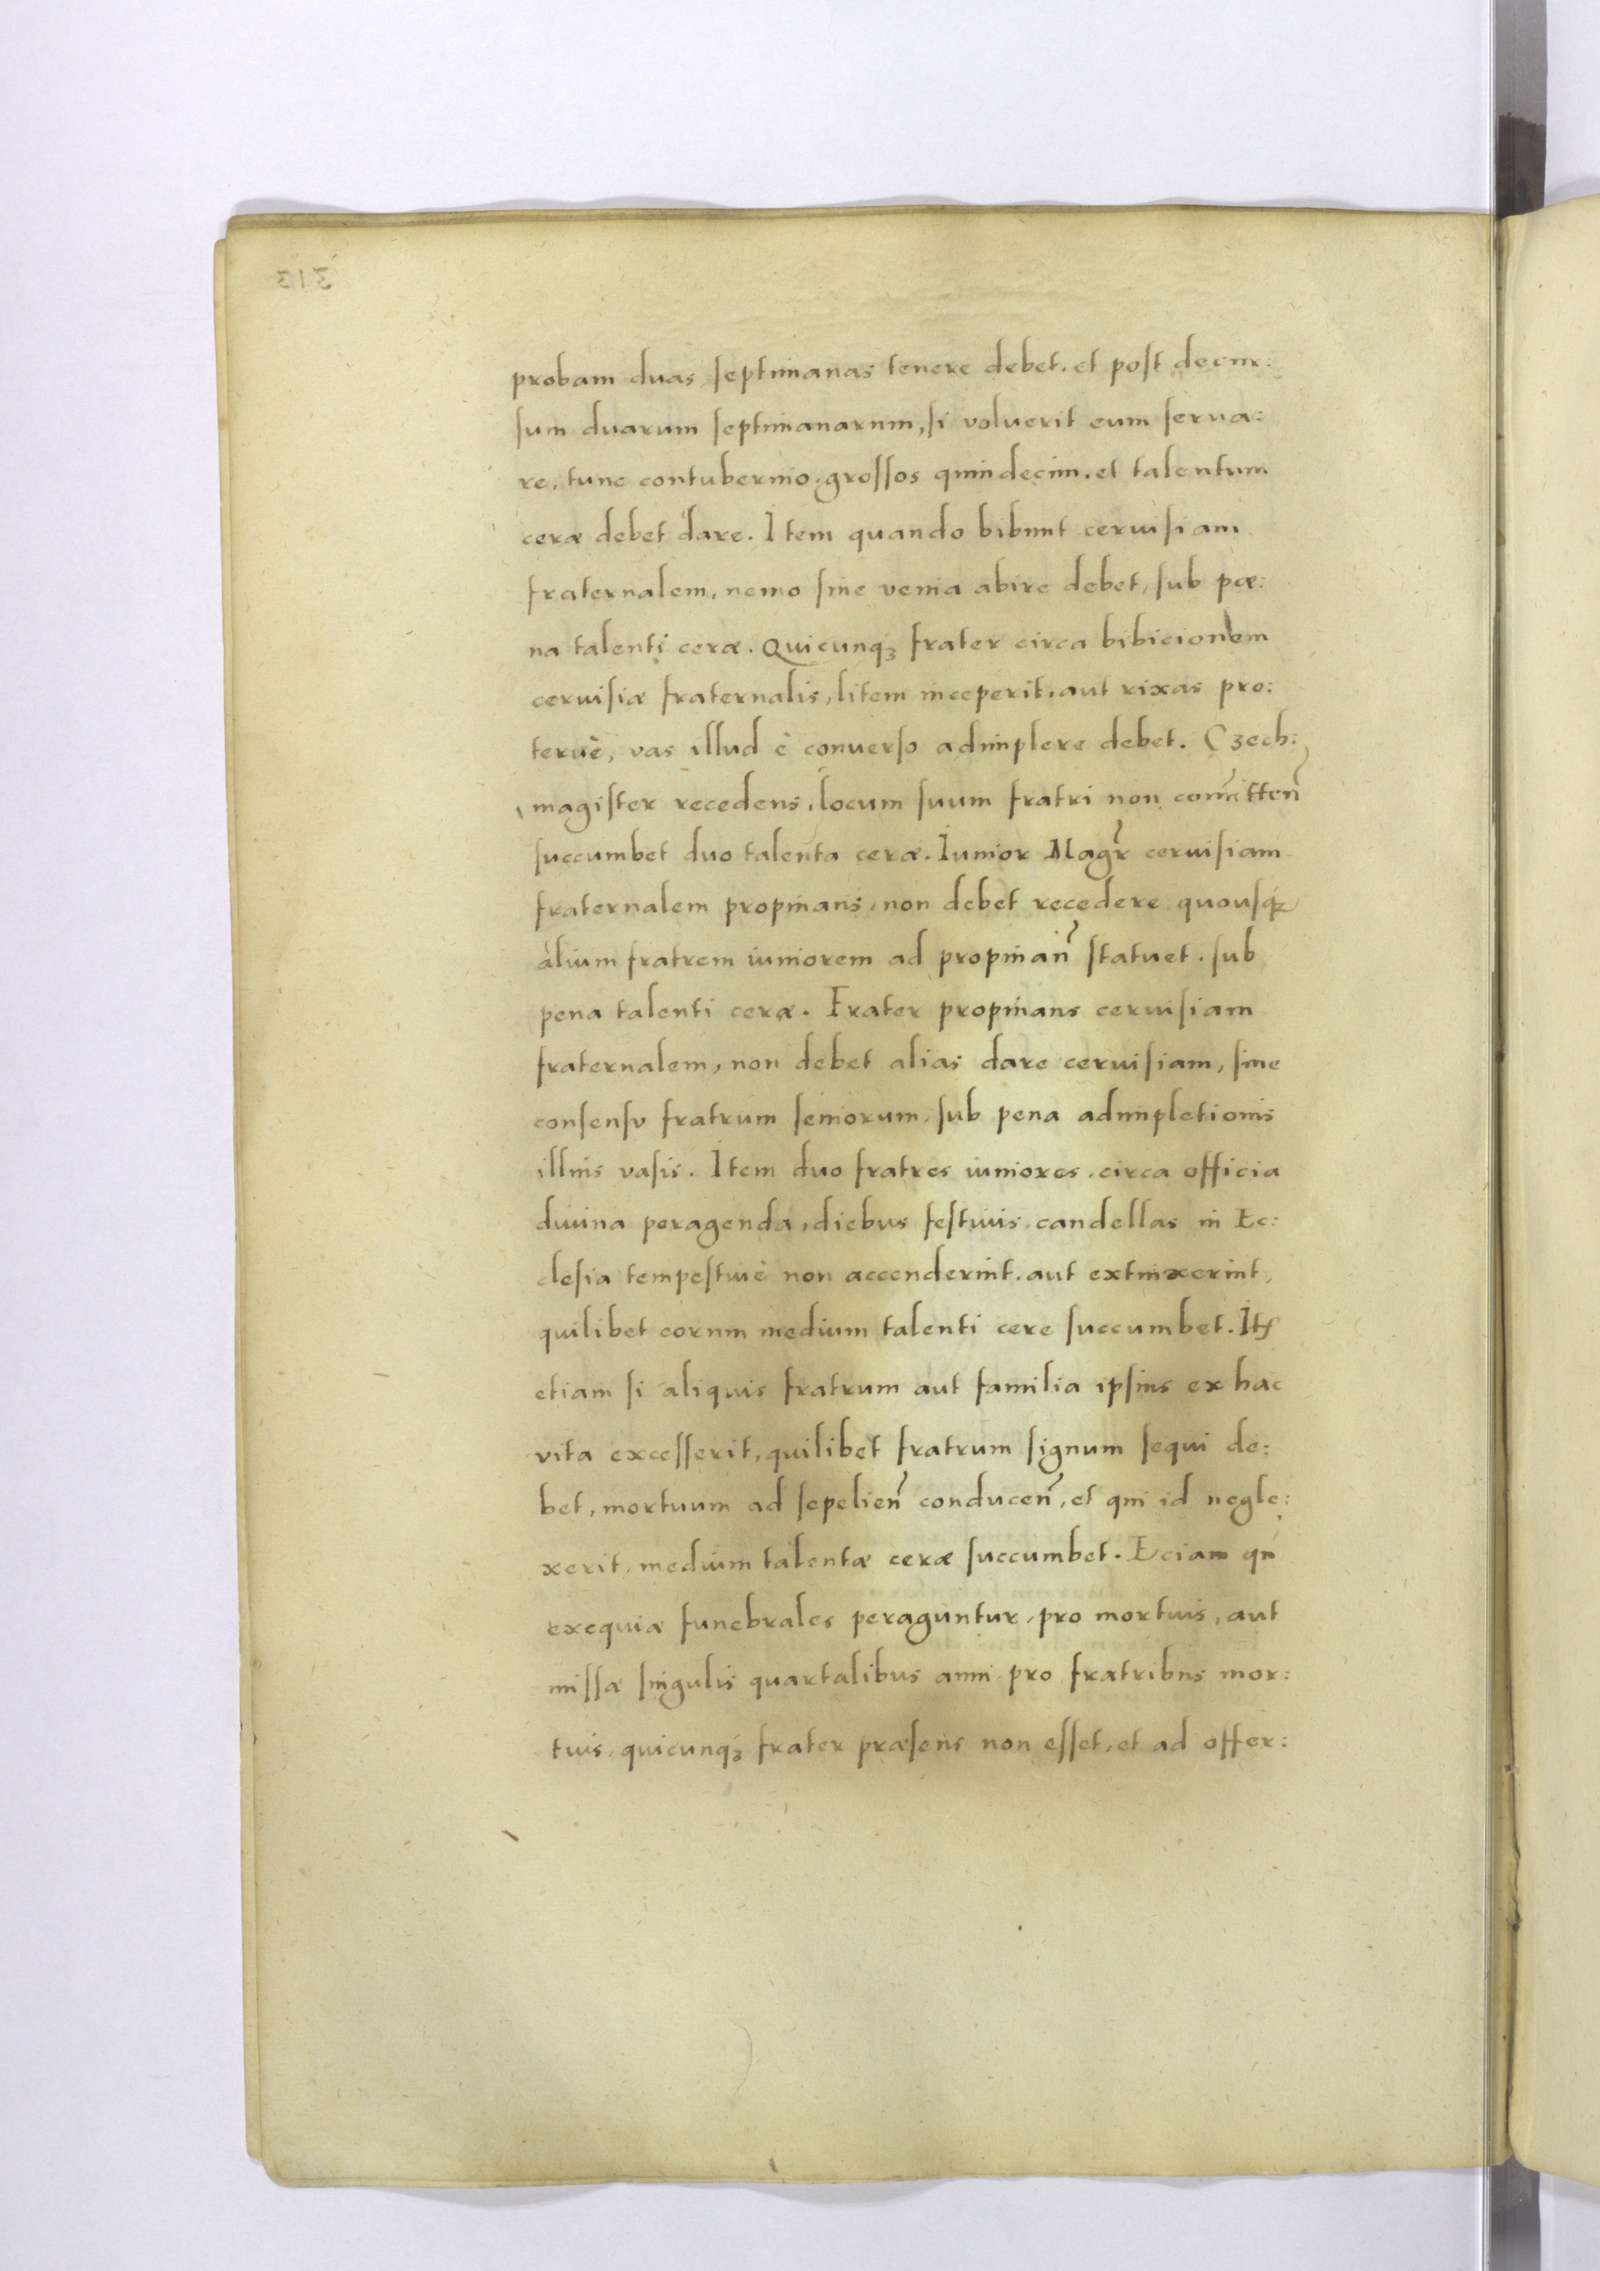 probam duas septimanas tenere debet. et post decur:
sum duarum septimanarum, si voluerit eum serua:
re, tunc contubernio, grossos quindecim. et talentum
ceræ debet dare. Item quando bibunt ceruisiam
fraternalem, nemo sine venia abire debet, sub pœ:
na talenti ceræ. Quicunqꝫ frater circa bibicionem
ceruisiæ fraternalis, litem inceperit, aut rixas pro:
teruè, vas illud è conuerso adimplere debet. Czech:
magister recedens, locum suum fratri non com̃itten̄
succumbet duo talenta ceræ. Iunior Magr̃ ceruisiam
fraternalem propinans, non debet recedere quousqꝫ
àlium fratrem iuniorem ad propinan̄ statuet. sub
pena talenti ceræ. Frater propinans ceruisiam
fraternalem, non debet alias dare ceruisiam, sine
consensu fratrum seniorum, sub pena adimpletionis
illius vasis. Item duo fratres iuniores, circa officia
diuina peragenda, diebus festiuis, candellas in Ec:
clesia tempestiuè non accenderint, aut extinxerint,
quilibet eorum medium talenti cere succumbet. Itꝭ
etiam si aliquis fratrum aut familia ipsius ex hac
vita excesserit, quilibet fratrum signum sequi de:
bet, mortuum ad sepelien̄ conducen̄, et qui id negle:
xerit, medium talentæ ceræ succumbet. Eciam qn̄
exequiæ funebrales peraguntur, pro mortuis, aut
missæ singulis quartalibus anni pro fratribus mor:
tuis, quicunqꝫ frater præsens non esset, et ad offer: